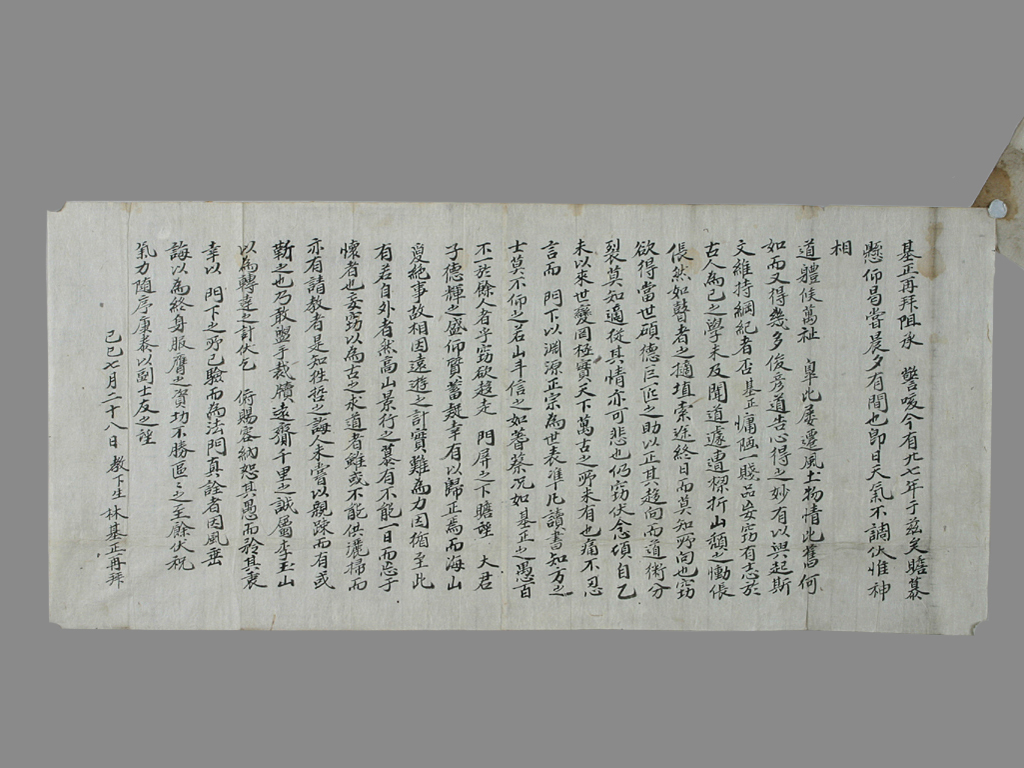 基正再拜阻承 謦咳今有九七年于玆矣瞻慕
懸仰曷嘗晨夕有間也卽日天氣不調伏惟神
相
道體候萬祉 皐比屢遷風土物情比舊何
如而又得幾多俊彦道告心得之妙有以興起斯
文維持綱紀者否基正慵陋一賤品妄窃有志於
古人爲己之學未及聞道遽遭樑折山頹之慟倀
倀然如瞽者之擿埴索途終日而莫知所向也窃
欲得當世碩德巨匠之助以正其趍向而道術分
裂莫知適從其情亦可悲也仍窃伏念頃自乙
未以來世變罔極實天下萬古之所未有也痛不忍
言而 門下以淵源正宗爲世表準凡讀書知方之
士莫不仰之若山斗信之如蓍蔡况如基正之愚百
不一於餘人者乎窃欲趍走 門屏之下瞻望 大君
子德輝之盛仰質蓄疑幸有以歸正焉而海山
夐絶事故相因遠遊之計實難爲力因循至此
有若自外者然高山景行之慕有不能一日而忘于
懷者也妄窃以爲古之求道者雖或不能供灑掃而
亦有請教者是知往哲之誨人未嘗以親疎而有或
靳之也乃敢盥手裁牘遠齎千里之誠屬李玉山
以爲轉達之計伏乞 俯賜容納恕其愚而矜其衷
幸以 門下之所已驗而爲法門真詮者因風垂
誨以爲終身服膺之資切不勝區〻之至餘伏祝
氣力隨序康泰以副士友之望
己巳七月二十八日 教下生林基正再拜